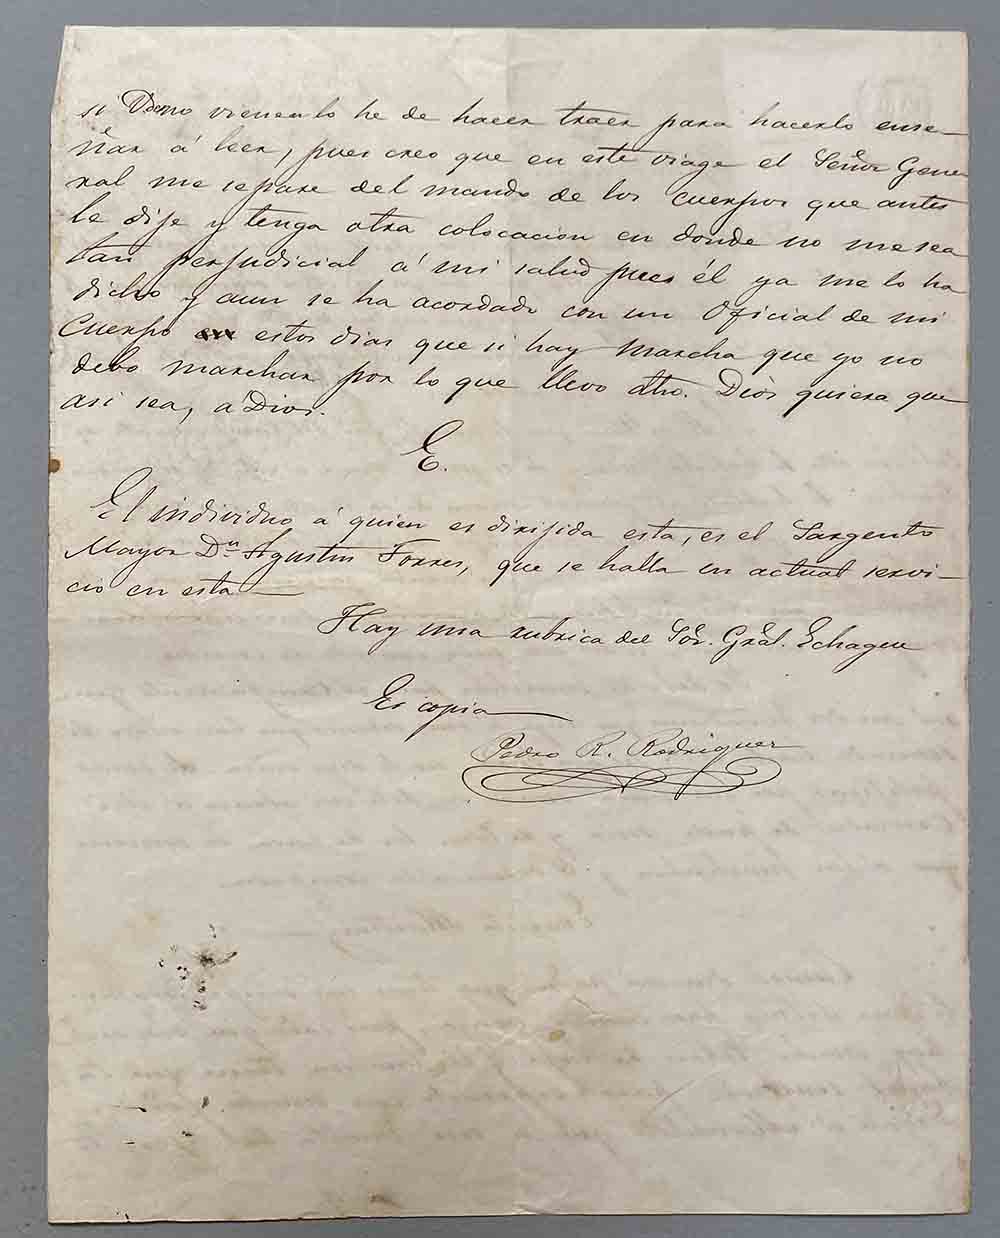 si Vmo vienen lo he de hacer traer para hacerlo ense-
ñar á leer, pues creo que en este viage el Señor Gene-
ral me separe del mando de los Cuerpos que antes
le dije y tenga otra colocacion en donde no me sea
tan perjudicial á mi salud pues él ya me lo ha
dicho y aun se ha acordado con un Oficial de mi
Cuerpo estos dias que si hay Marcha que yo no
debo marchar por lo que llevo otro. Dios quiera que
asi sea, á Dios.
E.
El individuo á quien es dirijida esta, es el Sargento
Mayor Dn Agustin Torres, que se halla en actual servi-
cio en esta—
Hay una rubrica del Sor. Gral. Echague
Es copia
Pedro R. Rodriguez